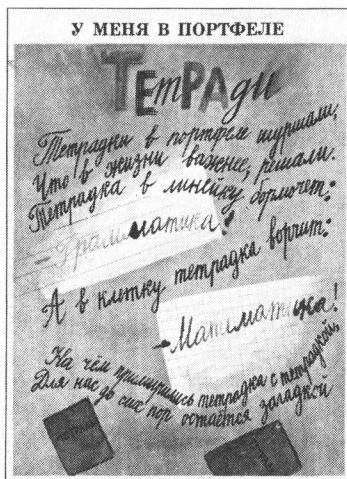 У МЕНЯ В ПОРТФЕЛЕ
ТЕтРАди
Тетрадки в портфеле шуршали,
Что в жизни важнее, решали.
Тетрадка в линейку бормочет:
– Грамматика!
А в клетку тетрадка ворчит:
– Математика!
На чём примирились тетрадка с тетрадкой,
Для нас до сих пор остаётся загадкой
ТЕТРАДЬ
ТЕТРАДЬ